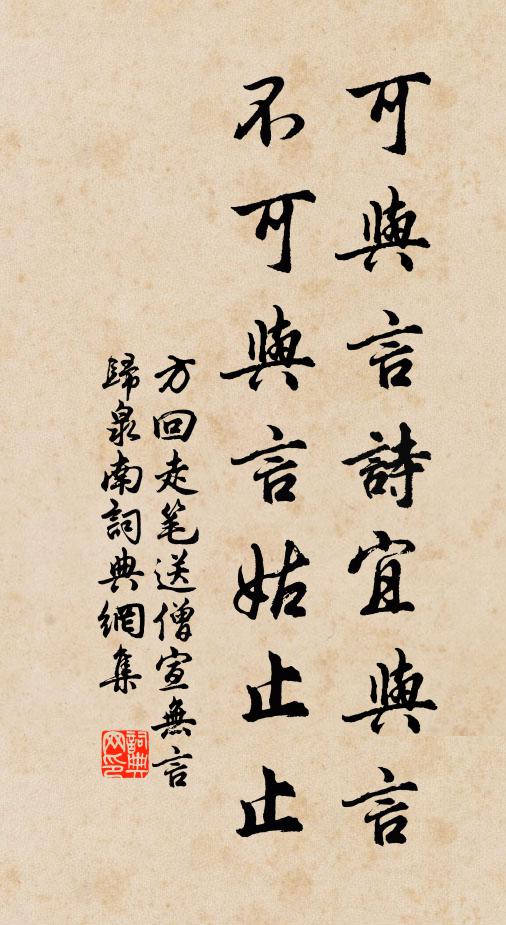 可與言詩宜與言
不可與言姑止止
方回走笔送僧宣無言
歸泉南詞典網集
詞典网印